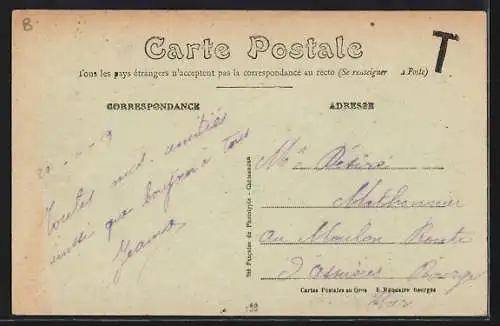 B
Carte Postale
T
Tous les pays étrangers n'acceptent pas la correspondance au recto (Se renseigner à la Poste)
CORRESPONDANCE
ADRESSE
20 - - 19
Toutes mes amitiés
ainsi que bonjour à tous
Jeanne
Mr Désiré
au Moulon Route
Bourges
Sté Française de Phototypie - Châteauroux
Cartes Postales en Gros E. Mancaire Georges
Cher